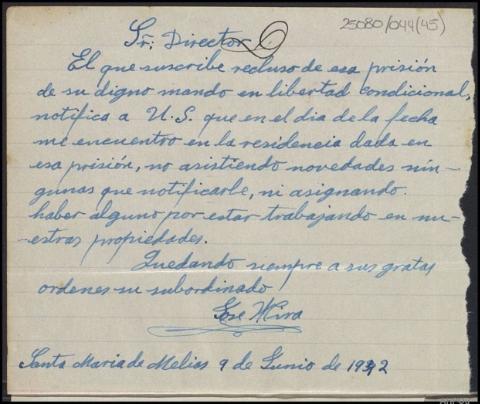 25080/044(45)
Sr: Director.
El que suscribe recluso de esa prisión
de su digno mando en libertad condicional,
notifica a U.S. que en el dia de la fecha
me encuentro en la residencia dada en
esa prisión, no asistiendo novedades nin-
gunas que notificarle, ni asignando
haber alguno por estar trabajando en nu-
estras propiedades.
Quedando siempre a sus gratas
ordenes su subordinado
José Mira
Santa Maria de Melias 9 de Junio de 1942